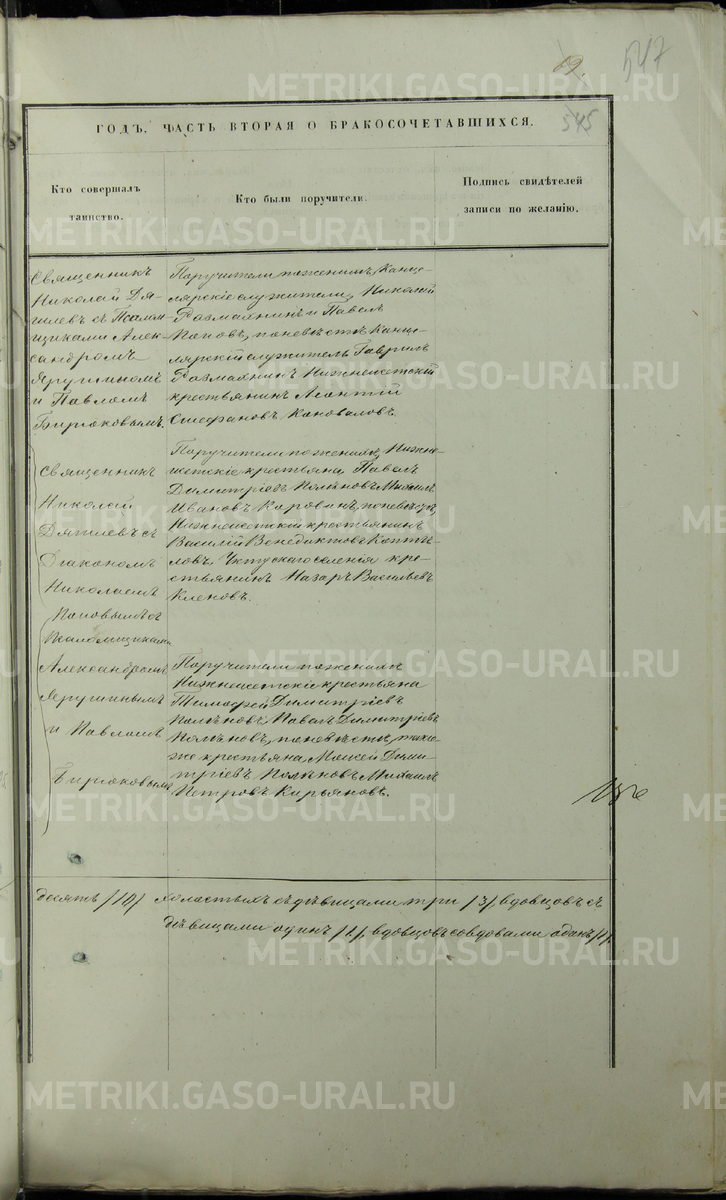 547
545
ГОДЪ. ЧАСТЬ ВТОРАЯ О БРАКОСОЧЕТАВШИХСЯ.
Кто совершалъ
таинство.
Кто были поручители.
Подпись свидѣтелей
записи по желанію.
Священникъ
Николай Дя-
гилевъ съ Псалом-
щиками Алек-
сандромъ
Ярушинымъ
и Павломъ
Бирюковымъ.
Поручители по женихѣ, Канце-
лярскіе служители, Николай
Размахнинъ и Павелъ
Поповъ, по невѣстѣ Канце-
лярскій служитель Гаврилъ
Размахнинъ Нижнеисетскій
крестьянинъ Леонтій
Стефановъ Коноваловъ.
Священникъ
Николай
Дягилевъ съ
Діакономъ
Николаемъ
Поповымъ съ
Псаломщиками
Александромъ
Ярушинымъ
и Павломъ
Бирюковымъ
Поручители по женихѣ Нижне-
исетскіе крестьяна Павелъ
Димитріевъ Михаилъ
Ивановъ Коровинъ, по невѣстѣ,
Нижнеисетскій крестьянинъ
Василій Венедиктовъ Копты-
ловъ Уктускаго селенія кре-
стьянинъ Назаръ Васильевъ
Кленовъ.
Поручители по женихѣ
Нижнеисетскіе крестьяна
Тимофей Димитріевъ
Павелъ Димитріевъ
по невѣстѣ, тѣхъ
же крестьяна, Моисей Дими-
тріевъ Михаилъ
Петровъ Кирьяновъ.
десять /10/ холостыхъ съ дѣвицами три /3/ вдовцовъ съ
дѣвицами одинъ /1/, вдовцовъ со вдовами одинъ /1/.
METRIKI.GASO-URAL.RU